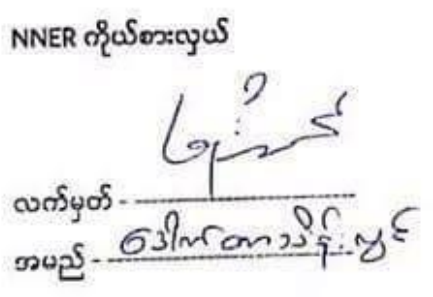 NNER ကိုယ်စားလှယ်
လက်မှတ် -
အမည် - ဒေါက်တာသိန်းလွင်